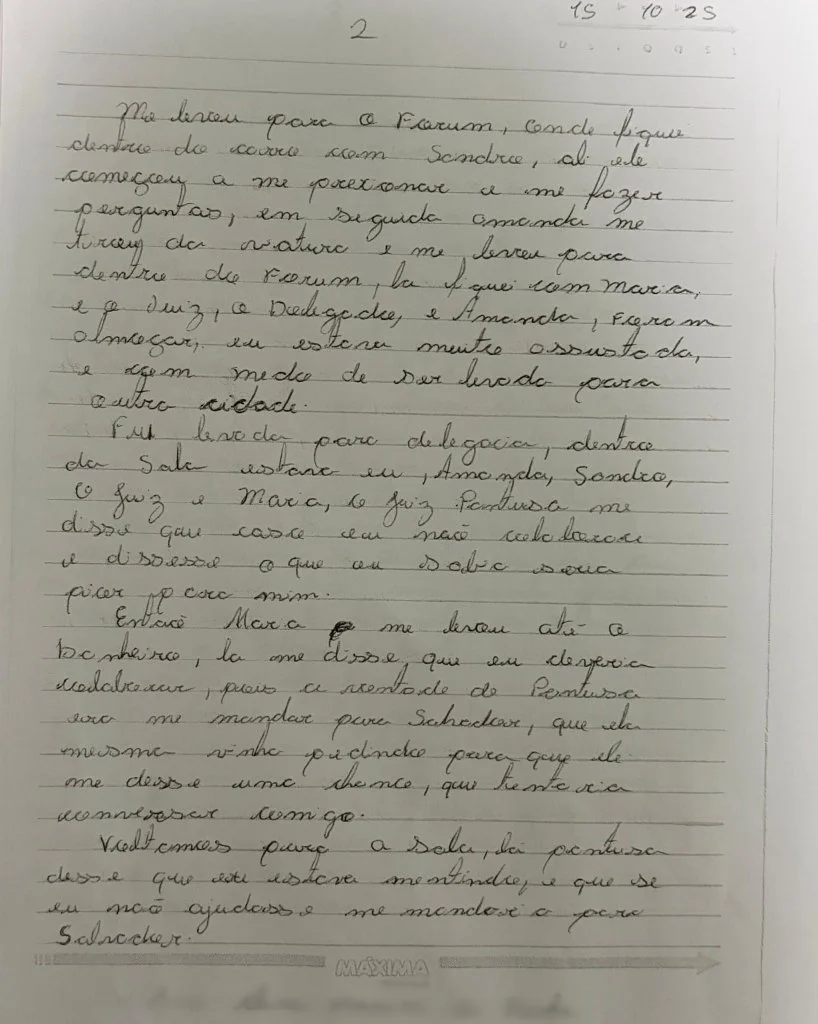 15 10 25
2
D S T Q Q S S
Me levou para o Forum, onde fiquei
dentro do carro com Sandro, ali ele
começou a me prexionar e me fazer
perguntas, em seguida amanda me
tirou da viatura e me levou para
dentro do Forum, la fiquei com Maria,
e o Juiz, o Delegado, e Amanda, Foram
almoçar, eu estava muito assustada,
e com medo de ser levada para
outra cidade.
Fui levada para delegacia, dentro
da Sala estava eu, Amanda, Sandro,
o Juiz e Maria, o Juiz Pantusa me
disse que caso eu não colaborace
e dissesse o que eu sabia seria
pior para mim.
Então Maria me levou até o
banheiro, la me disse, que eu deveria
colaborar, pois a vontade de Pantusa
era me mandar para Salvador, que ela
mesma vinha pedindo para que ele
me desse uma chance, que tentaria
conversar comigo.
Voltamos para a sala, lá pantusa
disse que eu estava mentindo, e que se
eu não ajudasse me mandaria para
Salvador.
MÁXIMA